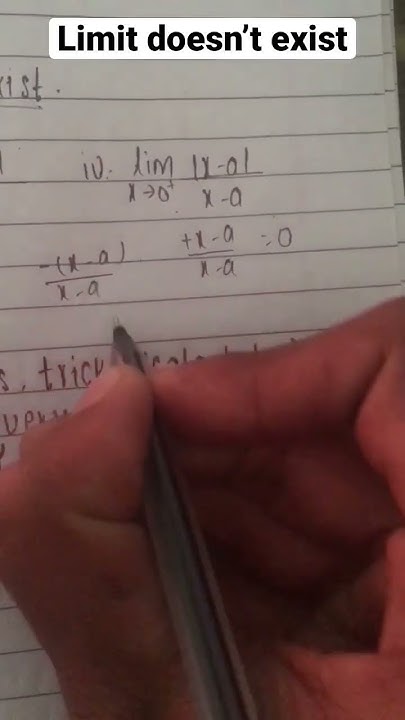 Limit doesn't exist
xist.
iv. lim |x-a|
x→0⁺ x-a
-(x-a) +x-a =0
x-a x-a
s, trick
very